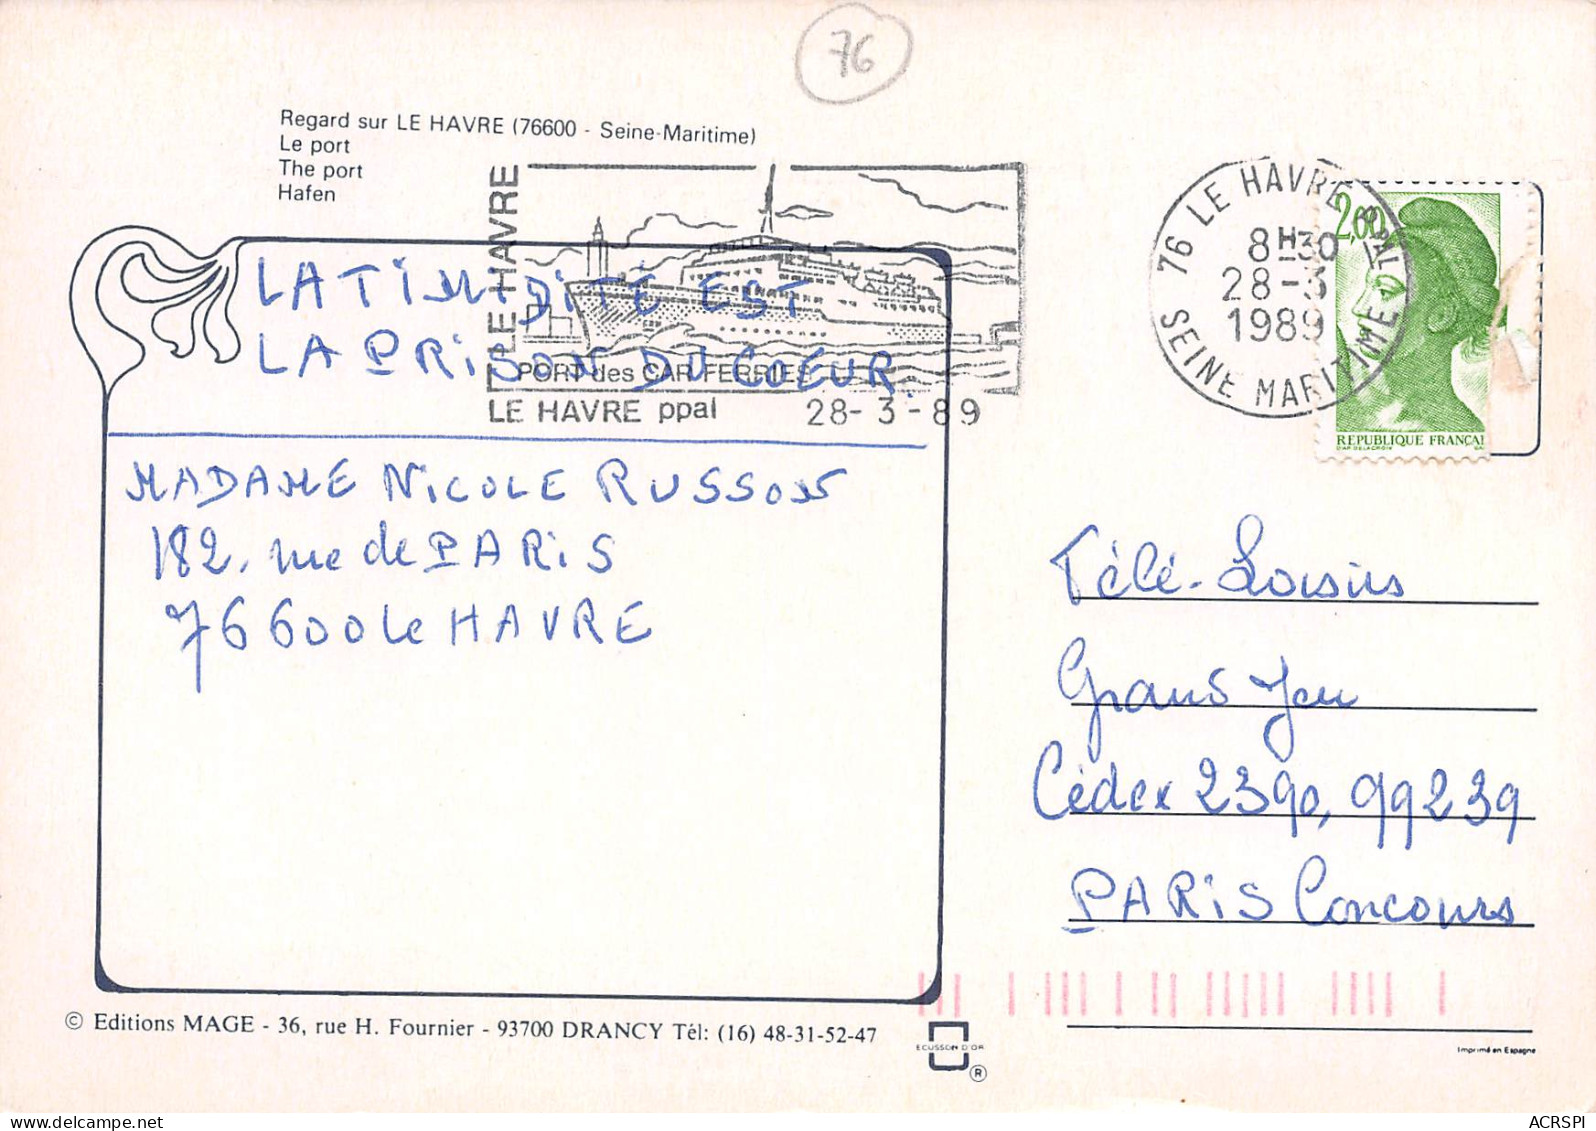 76
Regard sur LE HAVRE (76600 - Seine-Maritime)
Le port
The port
Hafen
LE HAVRE
LE HAVRE
PORT des CAR FERRIES
LE HAVRE ppal 28-3-89
76 LE HAVRE PPAL
8H30
28-3
1989
SEINE MARITIME
2,00
REPUBLIQUE FRANÇAI
LA TIMIDITÉ EST
LA PRISON DU COEUR.
MADAME NICOLE
182, rue de PARIS
76600 Le HAVRE
Télé-Loisirs
Grand Jeu
Cédex 2390, 99239
PARIS Concours
© Editions MAGE - 36, rue H. Fournier - 93700 DRANCY Tél: (16) 48-31-52-47
ECUSSON D'OR
®
Imprimé en Espagne
www.delcampe.net
ACRSPI